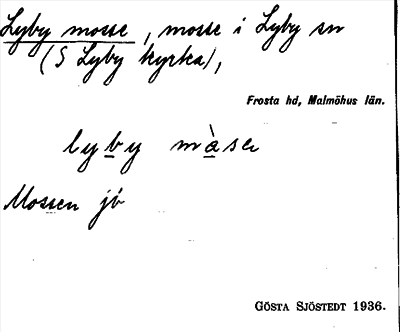 Lyby mosse, mosse i Lyby sn
(S Lyby kyrka),
Frosta hd, Malmöhus län.
lyby màse
Mossen jö
GÖSTA SJÖSTEDT 1936.